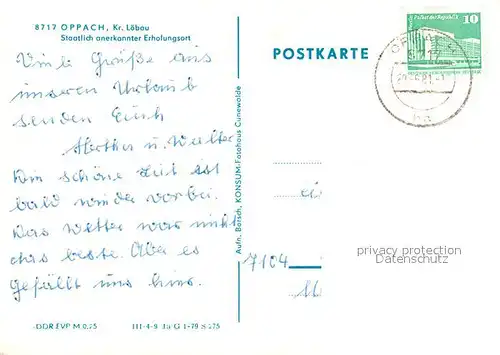 8717 OPPACH, Kr. Löbau
Staatlich anerkannter Erholungsort
Viele Grüße aus
unserem Urlaub
senden Euch
Herthe u. Walter
Die schöne Zeit ist
bald wieder vorbei.
Das Wetter war nicht
das beste. Aber es
gefällt uns hier.
DDR EVP M 0,25
III-4-9 Ja G 1-79 S 275
Aufn. Bartsch, KONSUM-Fotohaus Cunewalde
POSTKARTE
10
7104
privacy protection
Datenschutz